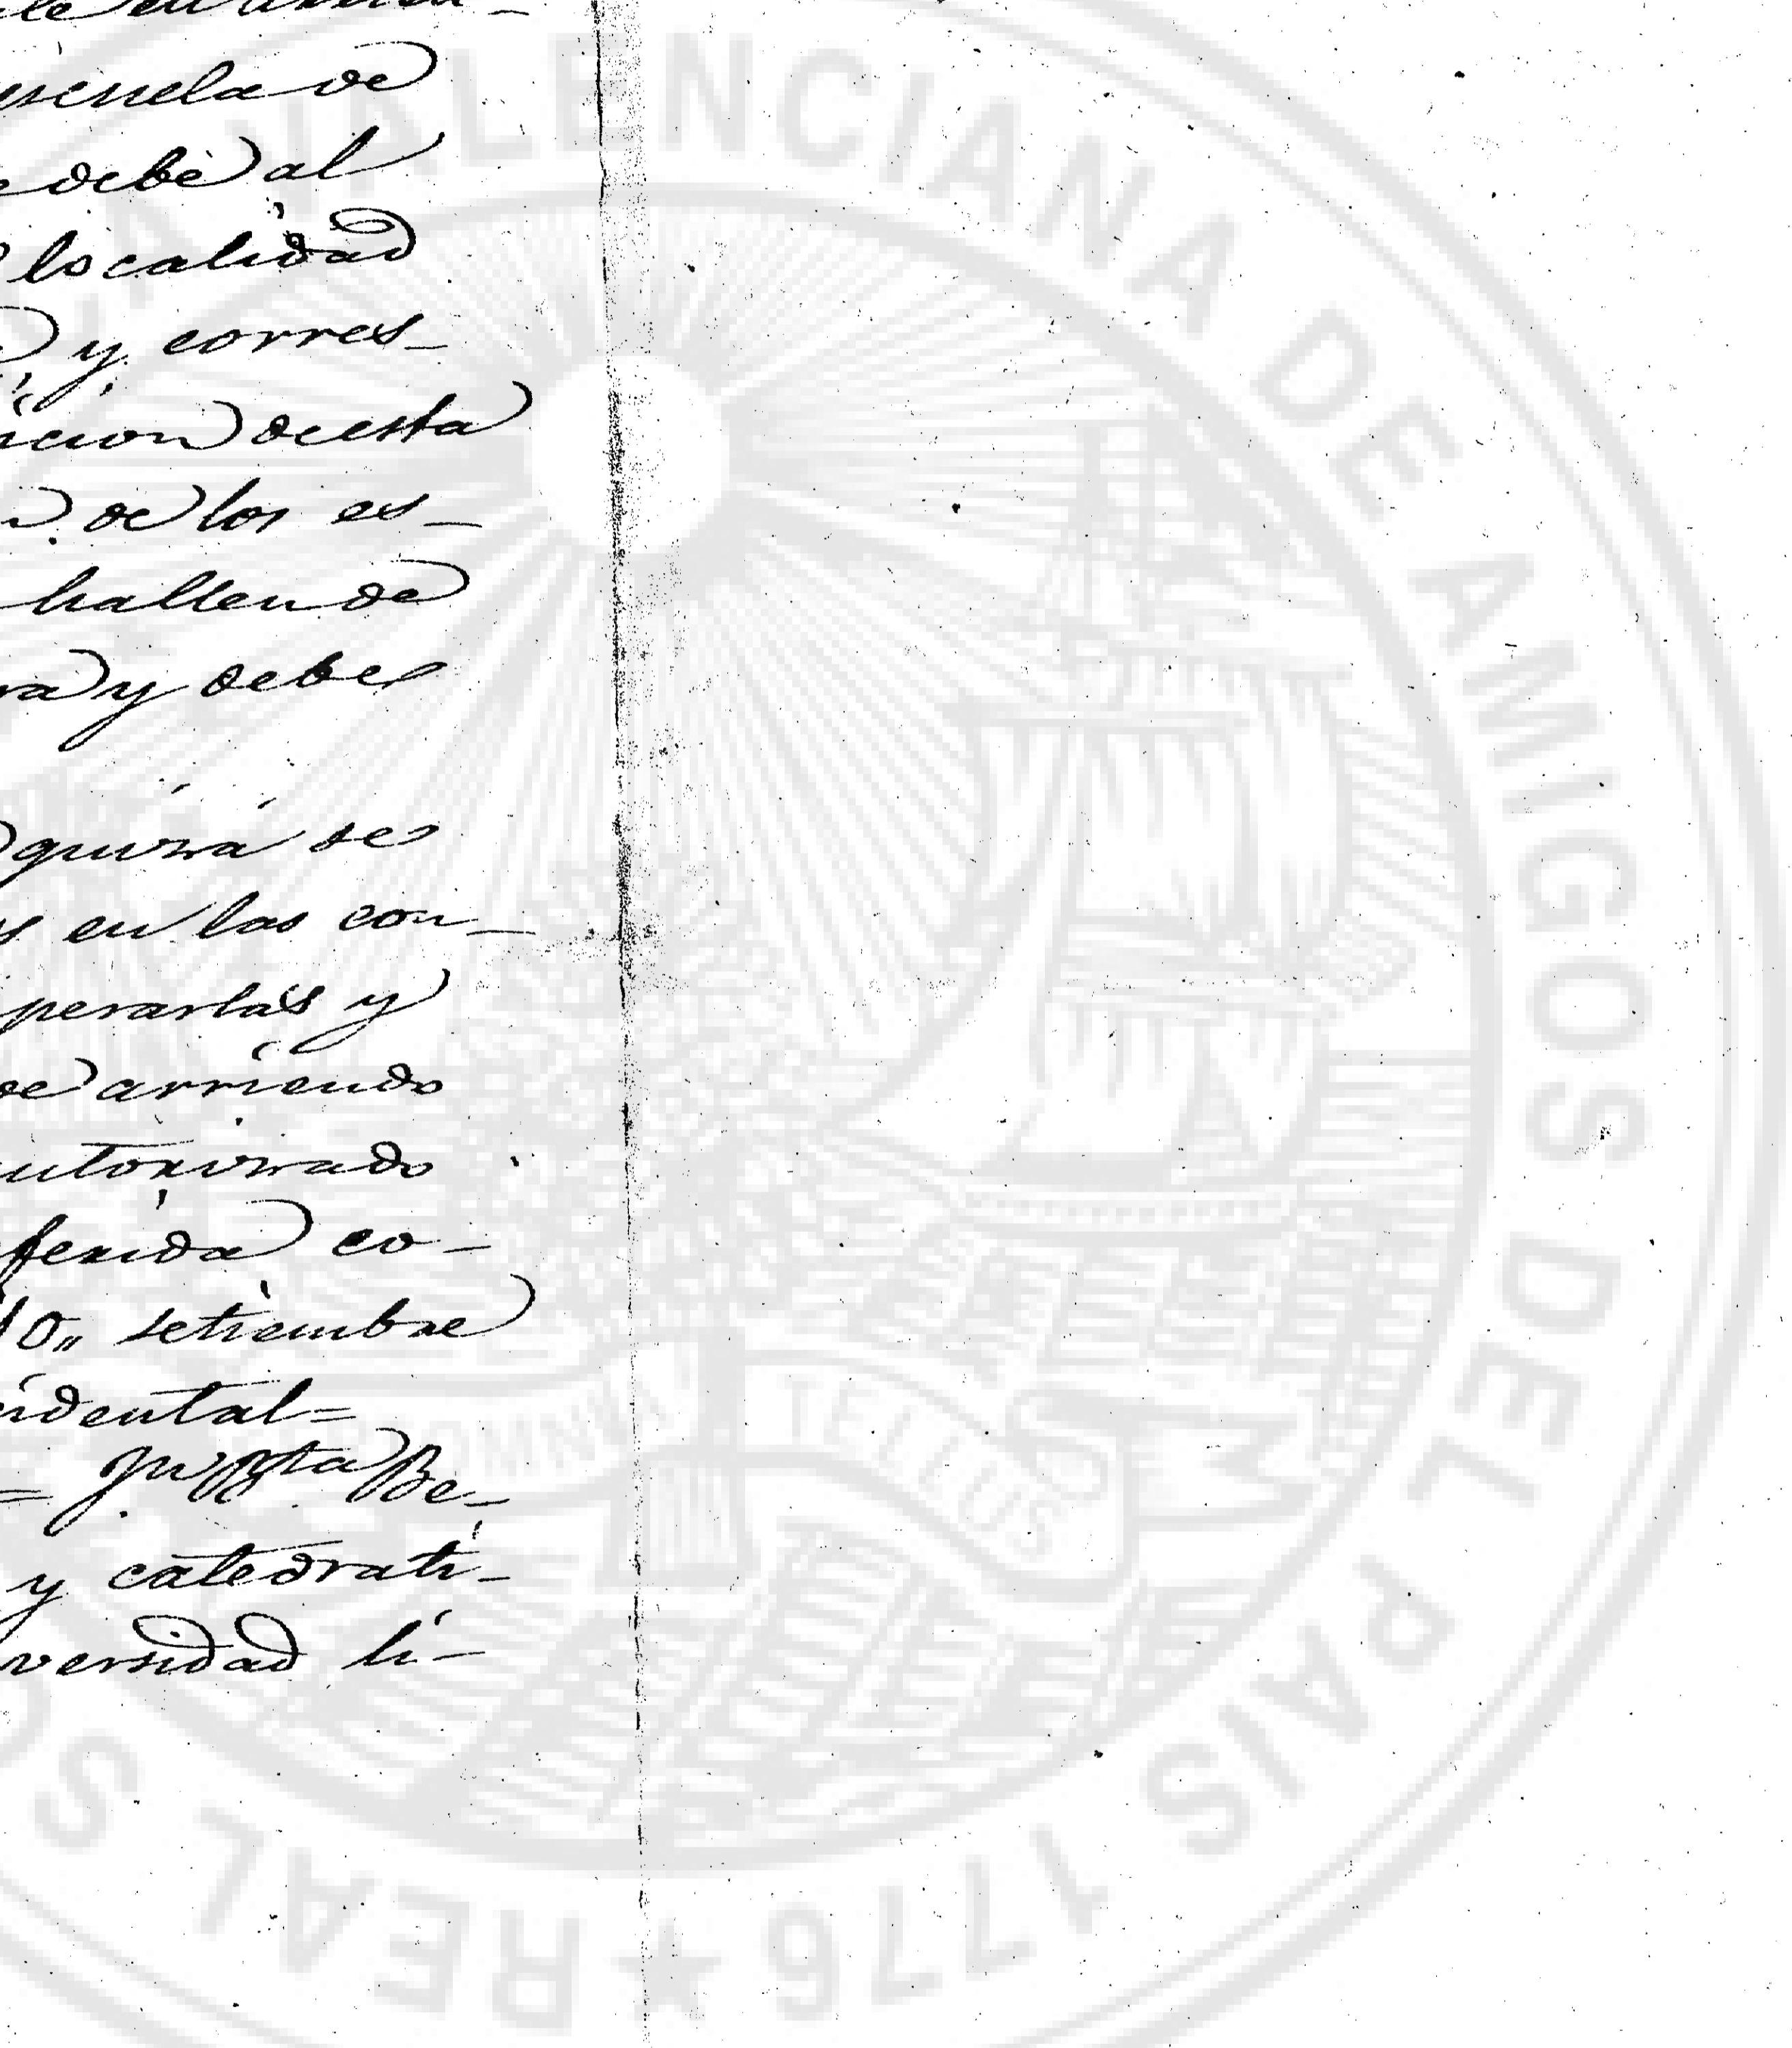 escuela de
debe al
localidad
y corres-
icion de esta
de los es-
hallen de
y debe
quizá se
en las con-
perarlas y
de arriendo
utorizado
ferida co-
10,, setiembre
idental=
= Be-
y catedrati-
versidad li-
VALENCIANA DE AMIGOS DEL PAIS 1776 ★ REAL S